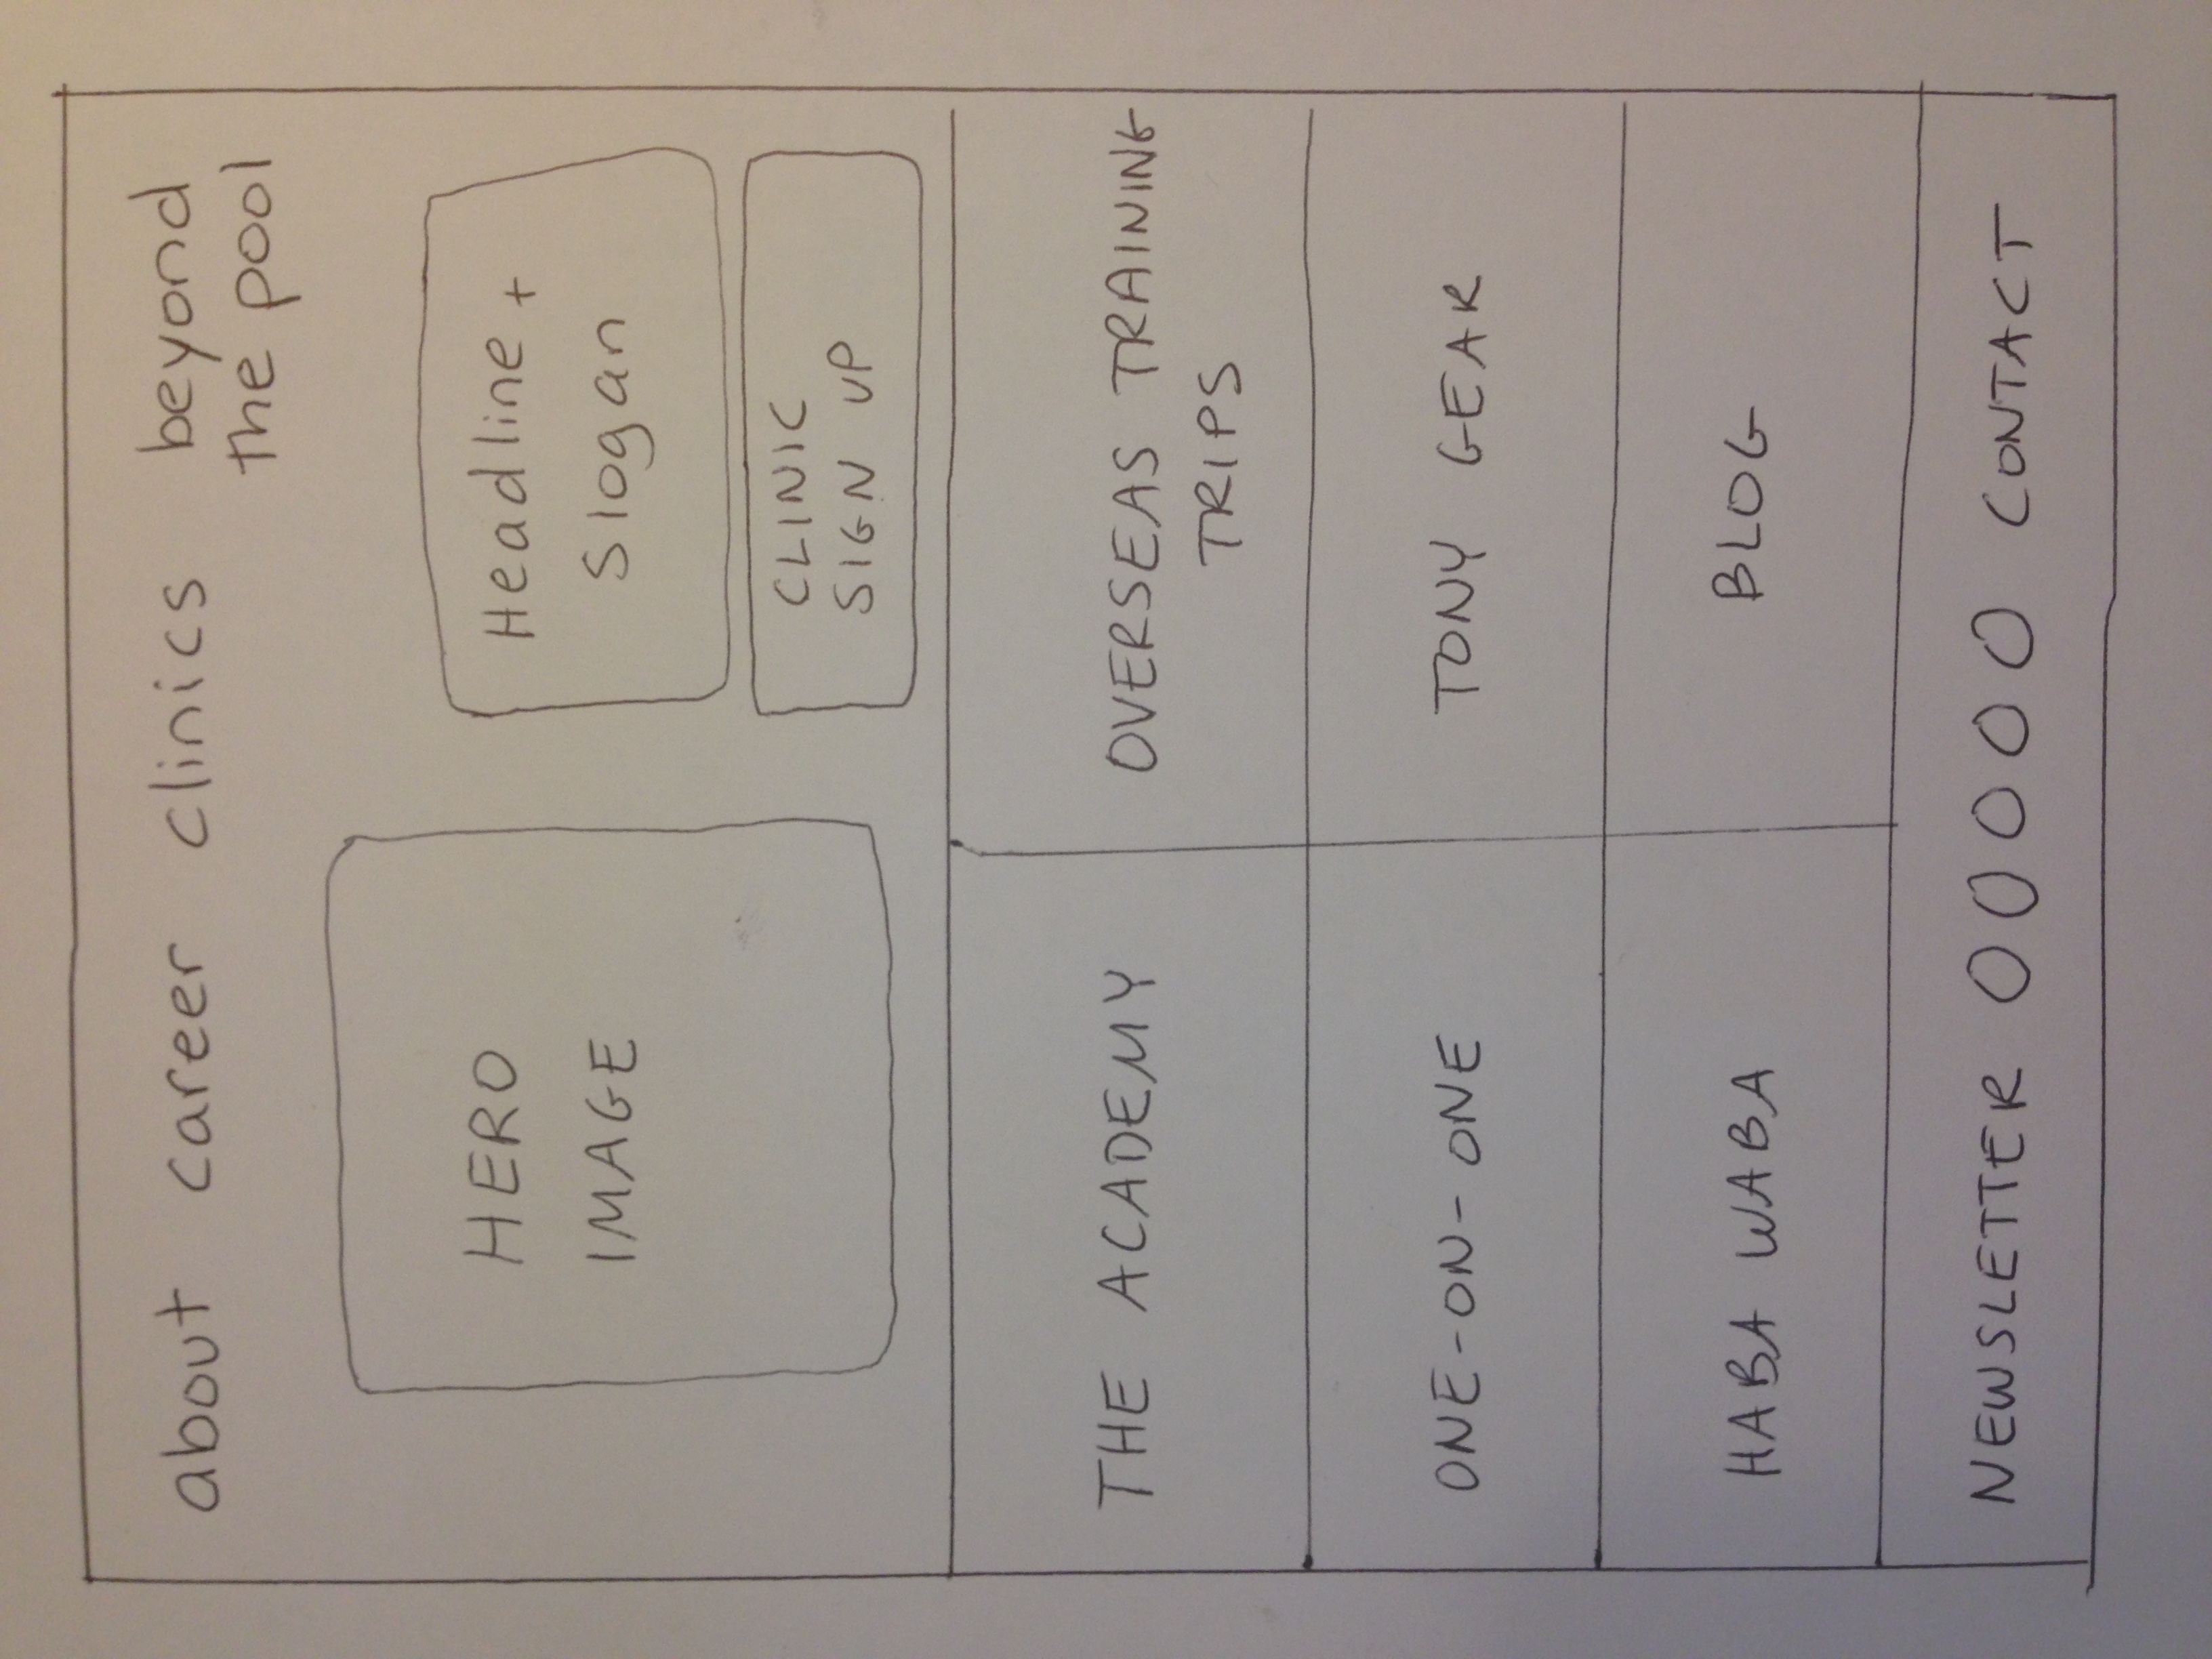 about career clinics beyond
the pool
HERO
IMAGE
Headline +
Slogan
CLINIC
SIGN UP
THE ACADEMY
OVERSEAS TRAINING
TRIPS
ONE-ON-ONE
TONY GEAR
HABA WABA
BLOG
NEWSLETTER O O O O O CONTACT